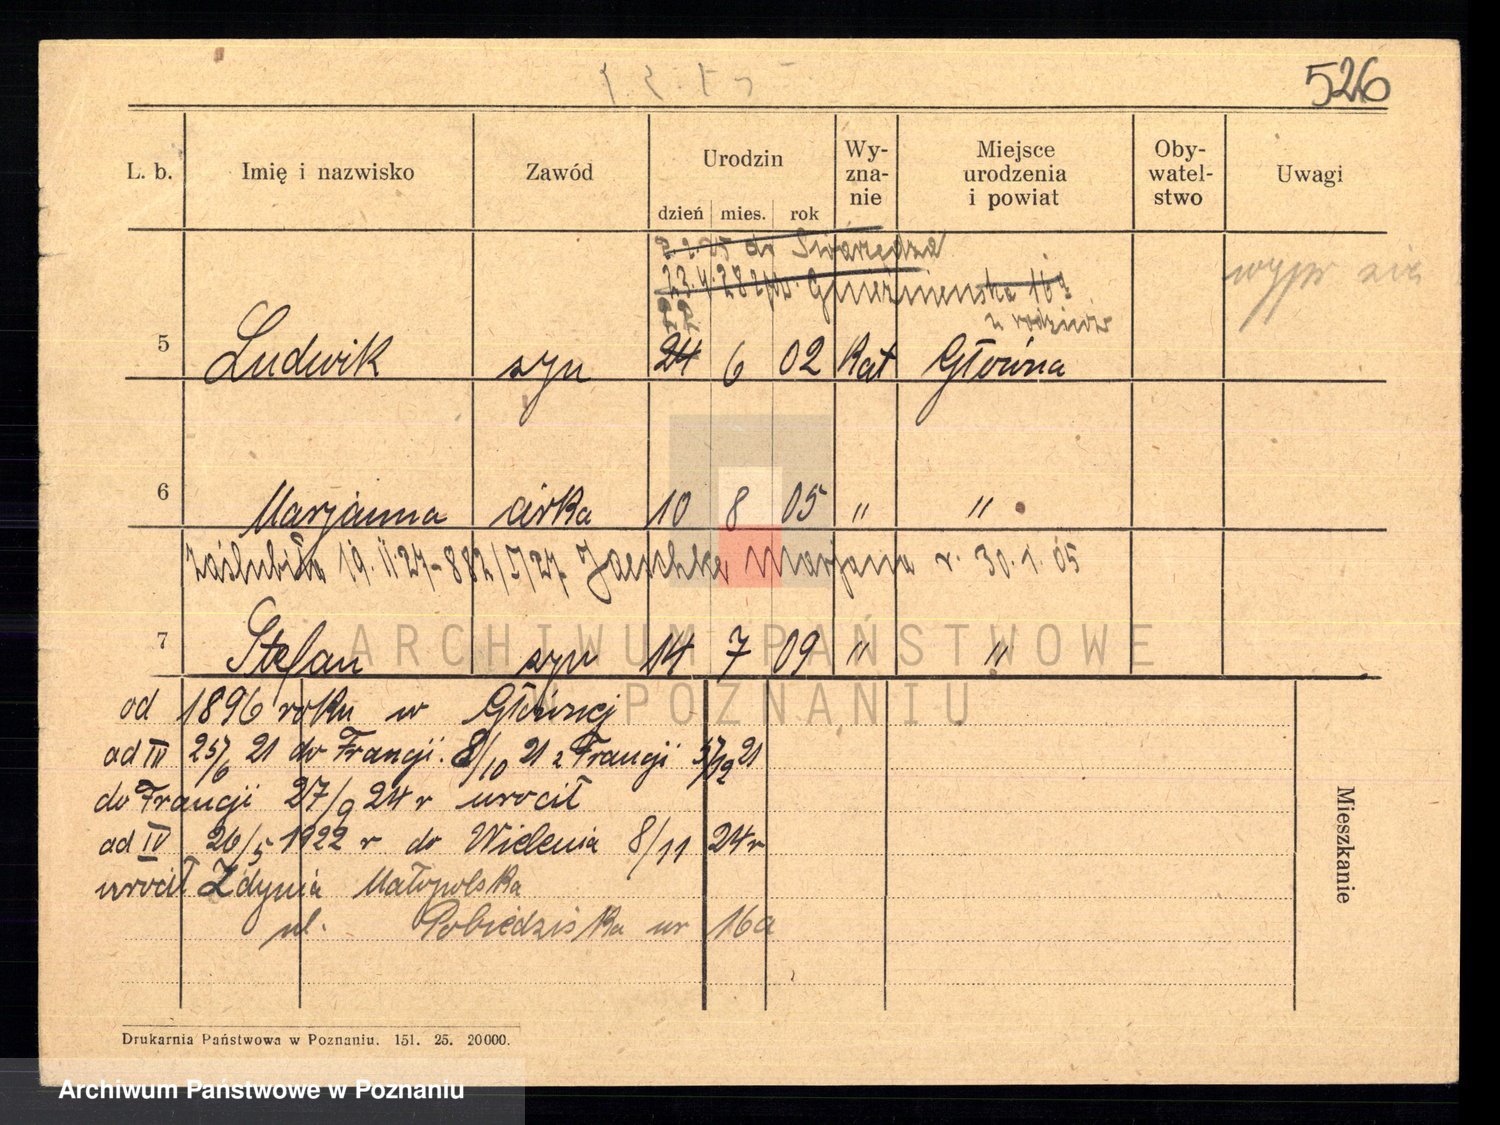 526
L. b.
Imię i nazwisko
Zawód
Urodzin
dzień mies. rok
Wy-
zna-
nie
Miejsce
urodzenia
i powiat
Oby-
watel-
stwo
Uwagi
do Swarzędza
Gnieźnieńska 16a
u rodziców
5 Ludwik syn 24 6 02 Kat Główna
6 Marjanna córka 10 8 05 " "
zaślubiła 19.11.27-882/5/27 Jaeschke Marjana r. 30.1.05
7 Stefan syn 14 7 09 " "
od 1896 roku w Głównej
ad IV 25/6 21 do Francji. 8/10 21 z Francji 21
do Francji 27/9 24 r wrócił
ad IV 26/5 1922 r do Wielenia 8/11 24 r
wrócił Zdynia Małopolska
ul. Pobiedziska nr 16a
Mieszkanie
Drukarnia Państwowa w Poznaniu. 151. 25. 20000.
ARCHIWUM PAŃSTWOWE
W POZNANIU
Archiwum Państwowe w Poznaniu